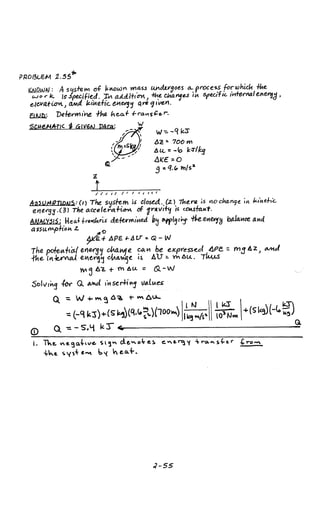 PROBLEM 2.55*
KNOWN: A system of known mass undergoes a process for which the
work is specified. In addition, the changes in specific internal energy,
elevation, and kinetic energy are given.
FIND: Determine the heat transfer.
SCHEMATIC & GIVEN DATA:
W
m=5kg
Q
z
W = -9 kJ
ΔZ = 700 m
Δu = -6 kJ/kg
ΔKE = 0
g = 9.6 m/s²
ASSUMPTIONS: (1) The system is closed. (2) There is no change in kinetic
energy. (3) The acceleration of gravity is constant.
ANALYSIS: Heat transfer is determined by applying the energy balance and
assumption 2
ΔKE + ΔPE + ΔU = Q - W
The potential energy change can be expressed ΔPE = mgΔZ, and
the internal energy change is ΔU = mΔu. Thus
mgΔZ + mΔu = Q - W
Solving for Q and inserting values
Q = W + mgΔZ + mΔu
= (-9 kJ) + (5 kg)(9.6 m/s²)(700m) | 1 N / 1 kg m/s² | | 1 kJ / 10³ N·m | + (5 kg)(-6 kJ/kg)
① Q = -5.4 kJ ← Q
1. The negative sign denotes energy transfer from
the system by heat.
2-55